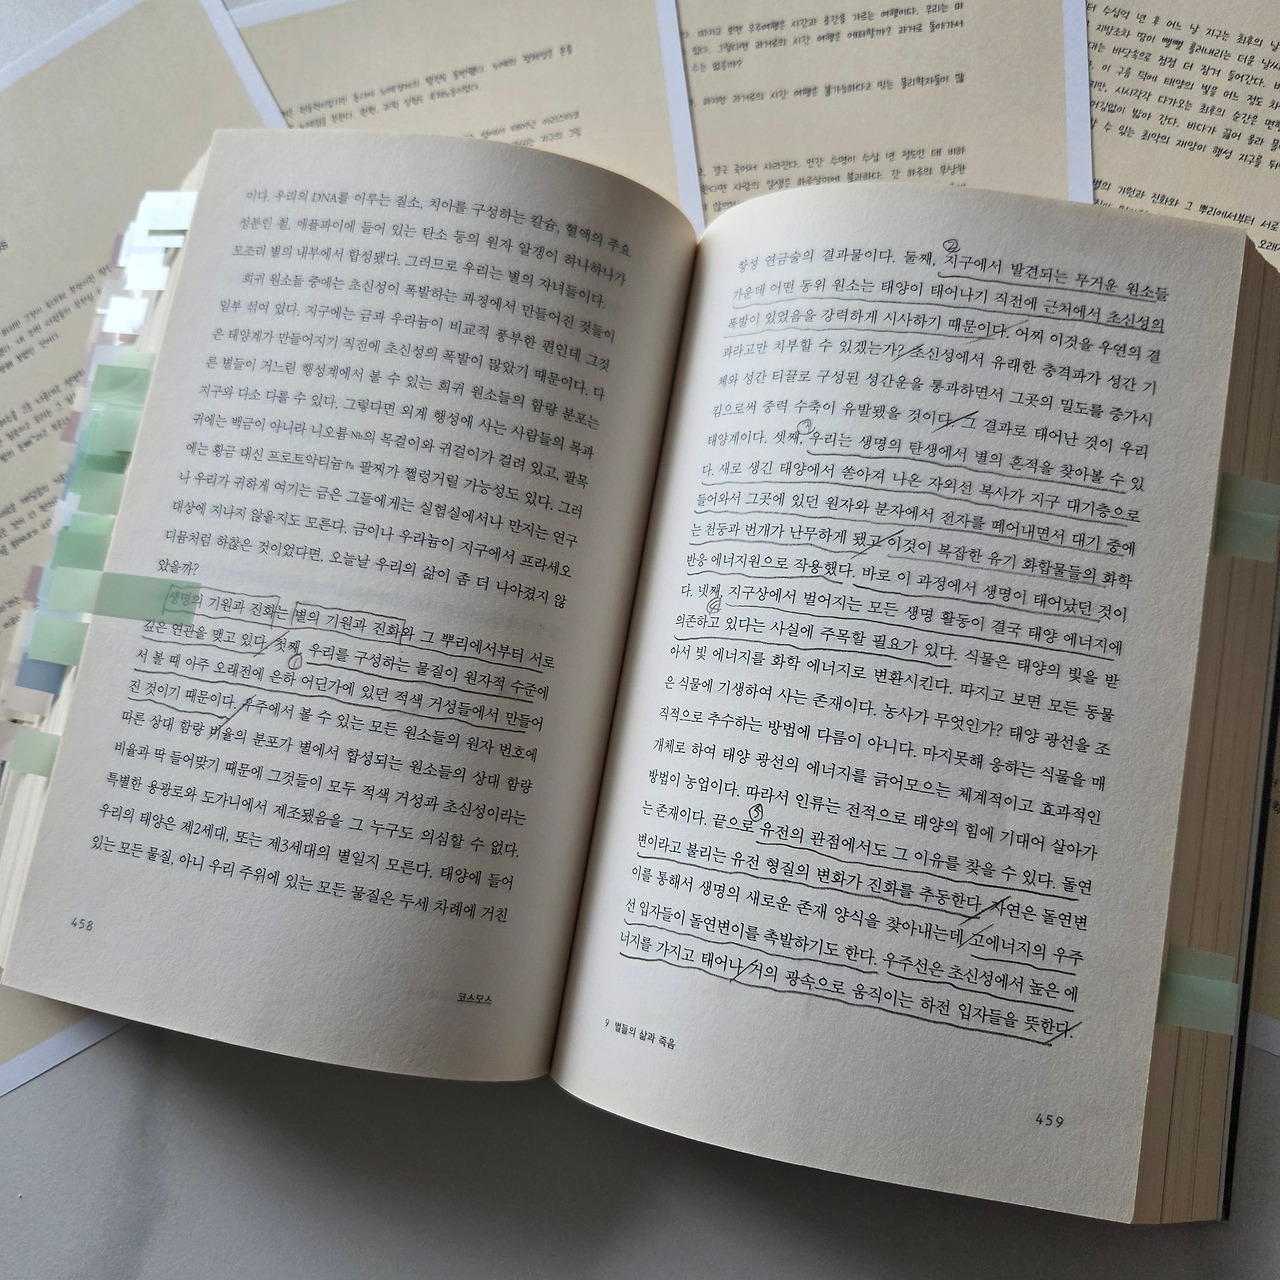 이다. 우리의 DNA를 이루는 질소, 치아를 구성하는 칼슘, 혈액의 주요
성분인 철, 애플파이에 들어 있는 탄소 등의 원자 알갱이 하나하나가
모조리 별의 내부에서 합성됐다. 그러므로 우리는 별의 자녀들이다.
희귀 원소들 중에는 초신성이 폭발하는 과정에서 만들어진 것들이
일부 섞여 있다. 지구에는 금과 우라늄이 비교적 풍부한 편인데 그것
은 태양계가 만들어지기 직전에 초신성의 폭발이 많았기 때문이다. 다
른 별들이 거느린 행성계에서 볼 수 있는 희귀 원소들의 함량 분포는
지구와 다소 다를 수 있다. 그렇다면 외계 행성에 사는 사람들의 목과
귀에는 백금이 아니라 니오븀Nb의 목걸이와 귀걸이가 걸려 있고, 팔목
에는 황금 대신 프로트악티늄Pa 팔찌가 쩔렁거릴 가능성도 있다. 그러
나 우리가 귀하게 여기는 금은 그들에게는 실험실에서나 만지는 연구
대상에 지나지 않을지도 모른다. 금이나 우라늄이 지구에서 프라세오
디뮴처럼 하찮은 것이었다면, 오늘날 우리의 삶이 좀 더 나아졌지 않
았을까?
생명의 기원과 진화는 별의 기원과 진화와 그 뿌리에서부터 서로
깊은 연관을 맺고 있다. 첫째, 우리를 구성하는 물질이 원자적 수준에
①
서 볼 때 아주 오래전에 은하 어딘가에 있던 적색 거성들에서 만들어
진 것이기 때문이다. 우주에서 볼 수 있는 모든 원소들의 원자 번호에
따른 상대 함량 비율의 분포가 별에서 합성되는 원소들의 상대 함량
비율과 딱 들어맞기 때문에 그것들이 모두 적색 거성과 초신성이라는
특별한 용광로와 도가니에서 제조됐음을 그 누구도 의심할 수 없다.
우리의 태양은 제2세대, 또는 제3세대의 별일지 모른다. 태양에 들어
있는 모든 물질, 아니 우리 주위에 있는 모든 물질은 두세 차례에 거친
458
코스모스
②
항성 연금술의 결과물이다. 둘째, 지구에서 발견되는 무거운 원소들
가운데 어떤 동위 원소는 태양이 태어나기 직전에 근처에서 초신성의
폭발이 있었음을 강력하게 시사하기 때문이다. 어찌 이것을 우연의 결
과라고만 치부할 수 있겠는가? 초신성에서 유래한 충격파가 성간 기
체와 성간 티끌로 구성된 성간운을 통과하면서 그곳의 밀도를 증가시
킴으로써 중력 수축이 유발됐을 것이다. 그 결과로 태어난 것이 우리
태양계이다. 셋째, 우리는 생명의 탄생에서 별의 흔적을 찾아볼 수 있
다. 새로 생긴 태양에서 쏟아져 나온 자외선 복사가 지구 대기층으로
들어와서 그곳에 있던 원자와 분자에서 전자를 떼어내면서 대기 중에
는 천둥과 번개가 난무하게 됐고 이것이 복잡한 유기 화합물들의 화학
반응 에너지원으로 작용했다. 바로 이 과정에서 생명이 태어났던 것이
다. 넷째, 지구상에서 벌어지는 모든 생명 활동이 결국 태양 에너지에
④
의존하고 있다는 사실에 주목할 필요가 있다. 식물은 태양의 빛을 받
아서 빛 에너지를 화학 에너지로 변환시킨다. 따지고 보면 모든 동물
은 식물에 기생하여 사는 존재이다. 농사가 무엇인가? 태양 광선을 조
직적으로 추수하는 방법에 다름이 아니다. 마지못해 응하는 식물을 매
개체로 하여 태양 광선의 에너지를 긁어모으는 체계적이고 효과적인
방법이 농업이다. 따라서 인류는 전적으로 태양의 힘에 기대어 살아가
⑤
는 존재이다. 끝으로 유전의 관점에서도 그 이유를 찾을 수 있다. 돌연
변이라고 불리는 유전 형질의 변화가 진화를 추동한다. 자연은 돌연변
이를 통해서 생명의 새로운 존재 양식을 찾아내는데 고에너지의 우주
선 입자들이 돌연변이를 촉발하기도 한다. 우주선은 초신성에서 높은 에
너지를 가지고 태어나 거의 광속으로 움직이는 하전 입자들을 뜻한다.
9 별들의 삶과 죽음
459